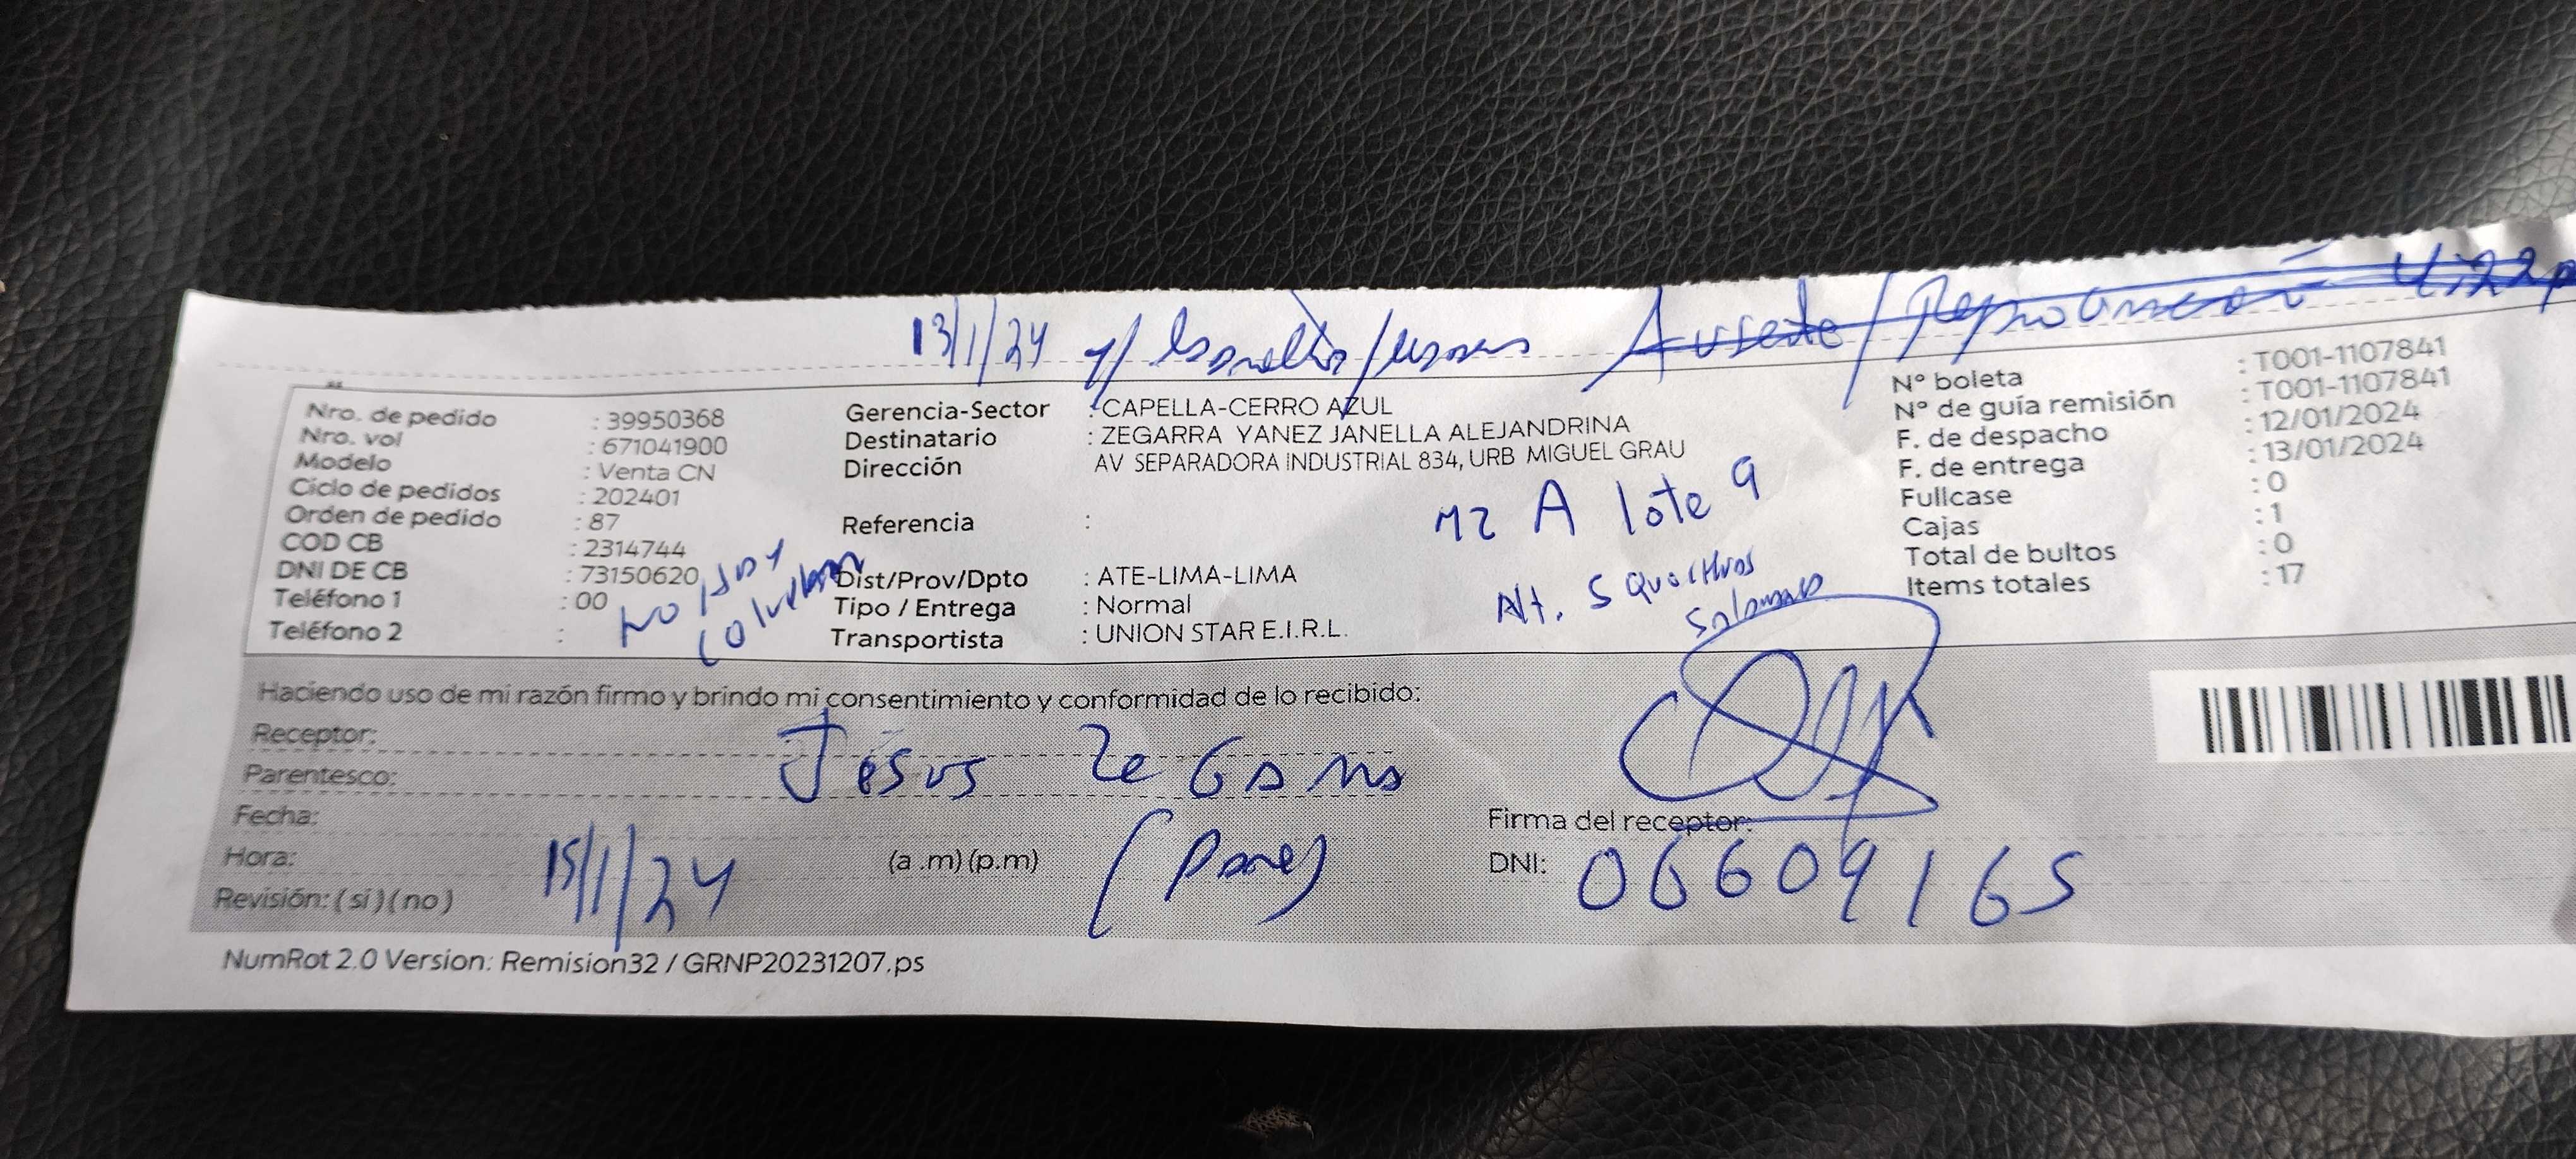 13/1/24
Ausente/Reprogramación 4:22p
Nro. de pedido : 39950368
Nro. vol : 671041900
Modelo : Venta CN
Ciclo de pedidos : 202401
Orden de pedido : 87
COD CB : 2314744
DNI DE CB : 73150620
Teléfono 1 : 00
Teléfono 2 :
NO
Gerencia-Sector : CAPELLA-CERRO AZUL
Destinatario : ZEGARRA YANEZ JANELLA ALEJANDRINA
Dirección AV SEPARADORA INDUSTRIAL 834, URB MIGUEL GRAU
Mz A lote 9
Referencia :
Alt.
Dist/Prov/Dpto : ATE-LIMA-LIMA
Tipo / Entrega : Normal
Transportista : UNION STAR E.I.R.L.
N° boleta : T001-1107841
N° de guía remisión : T001-1107841
F. de despacho : 12/01/2024
F. de entrega : 13/01/2024
Fullcase : 0
Cajas : 1
Total de bultos : 0
Items totales : 17
Haciendo uso de mi razón firmo y brindo mi consentimiento y conformidad de lo recibido:
Receptor:
Jesus Zegarra
Parentesco:
Fecha:
Hora: (a .m) (p.m)
15/1/24
(Padre)
Revisión: ( si ) ( no )
Firma del receptor:
DNI: 06609165
NumRot 2.0 Version: Remision32 / GRNP20231207.ps